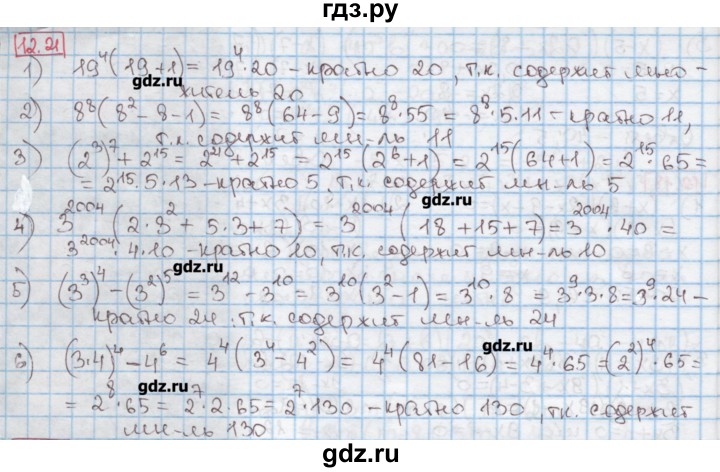 гдз.ру
12.21
1) 19⁴(19+1) = 19⁴·20 – кратно 20, т.к. содержит мно-
житель 20
2) 8⁸(8²-8-1) = 8⁸(64-9) = 8⁸·55 = 8⁸·5·11 – кратно 11,
т.к. содержит мн-ль 11
гдз.ру
3) (2³)⁷+2¹⁵ = 2²¹+2¹⁵ = 2¹⁵(2⁶+1) = 2¹⁵(64+1) = 2¹⁵·65 =
= 2¹⁵·5·13 – кратно 5, т.к. содержит мн-ль 5
гдз.ру
4) 3²⁰⁰⁴(2·3²+5·3+7) = 3²⁰⁰⁴(18+15+7) = 3²⁰⁰⁴·40 =
3²⁰⁰⁴·4·10 – кратно 10, т.к. содержит мн-ль 10
гдз.ру
5) (3³)⁴-(3²)⁵ = 3¹²-3¹⁰ = 3¹⁰(3²-1) = 3¹⁰·8 = 3⁹·3·8 = 3⁹·24 –
кратно 24 т.к. содержит мн-ль 24
гдз.ру
6) (3·4)⁴-4⁶ = 4⁴(3⁴-4²) = 4⁴(81-16) = 4⁴·65 = (2²)⁴·65 =
гдз.ру
= 2⁸·65 = 2⁷·2·65 = 2⁷·130 – кратно 130, т.к. содержит
мн-ль 130
гдз.ру
гдз.ру